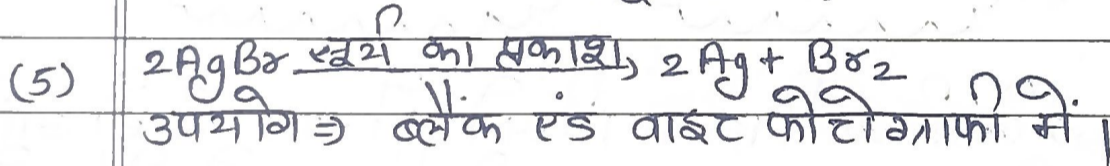 (5) 2AgBr सूर्य का प्रकाश→ 2Ag + Br2
उपयोग ⇒ ब्लैक एंड वाईट फोटोग्राफी में।